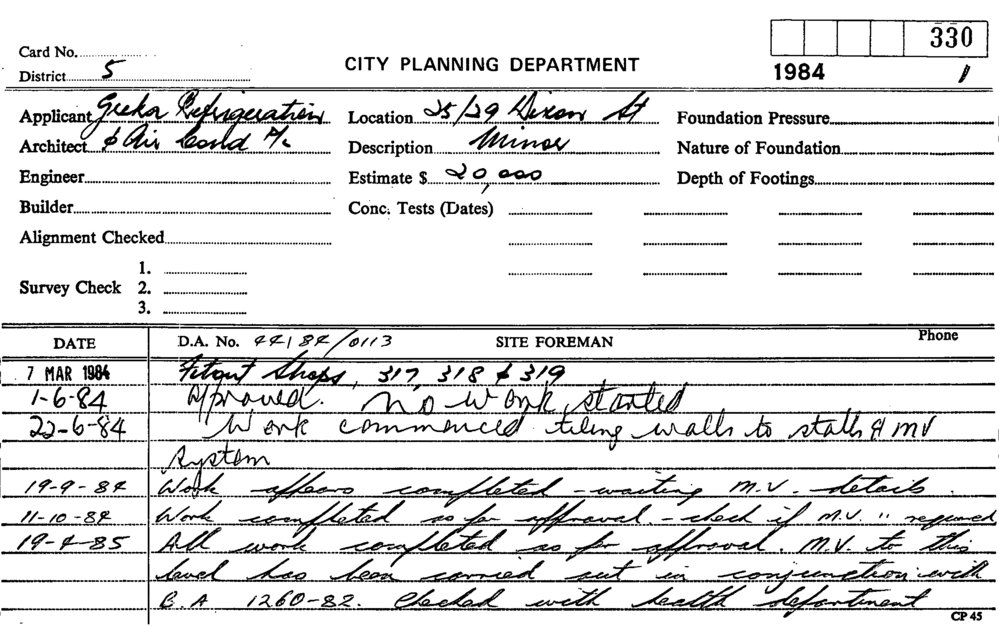 330
Card No.
District 5
CITY PLANNING DEPARTMENT
1984 1
Applicant Refrigeration
Location 25/29 Dixon St
Foundation Pressure
Architect & Air Cond
Description Minor
Nature of Foundation
Engineer
Estimate $ 20,000
Depth of Footings
Builder
Conc. Tests (Dates)
Alignment Checked
1.
Survey Check 2.
3.
DATE D.A. No. 44/84/0113 SITE FOREMAN Phone
7 MAR 1984 Fitout Shops, 317, 318 & 319
1-6-84 Approved. No work started
22-6-84 Work commenced tiling walls to stalls & MV
system
19-9-84 Work appears completed - waiting M.V. details.
11-10-84 Work completed as per approval. - check if M.V. " required
19-4-85 All work completed as per approval. M.V. to this
level has been carried out in conjunction with
B.A 1260-82. Checked with health department
CP 45